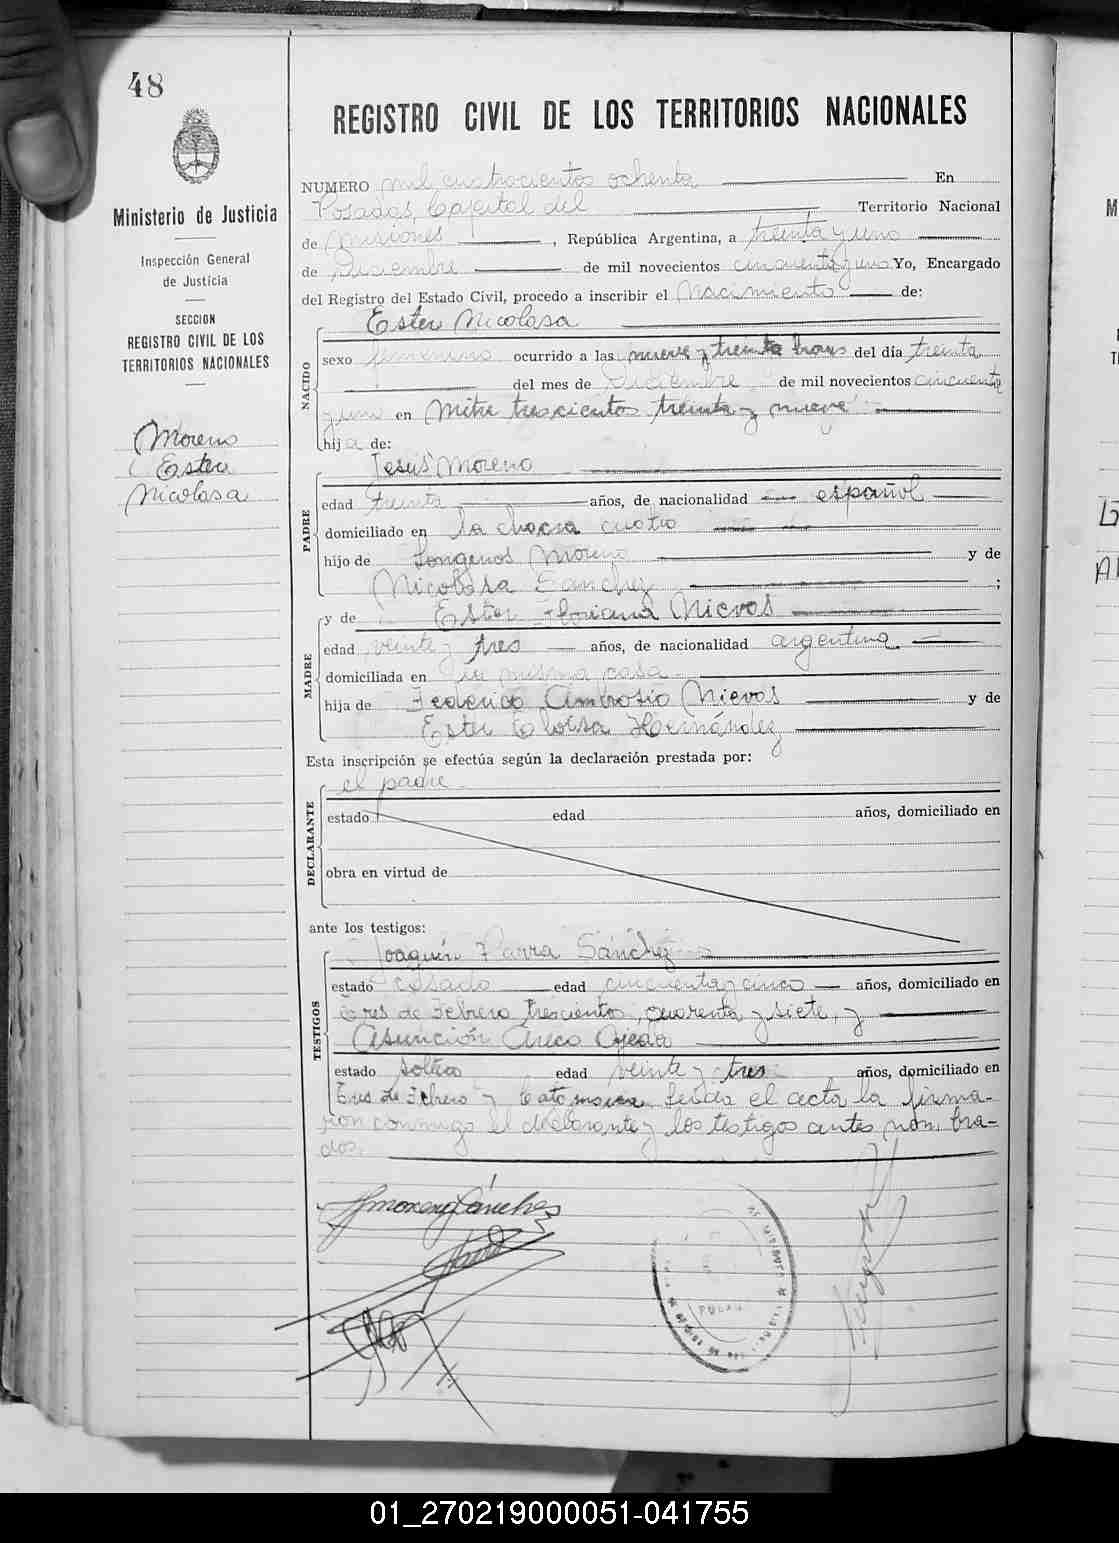 48
REGISTRO CIVIL DE LOS TERRITORIOS NACIONALES
Ministerio de Justicia
Inspección General
de Justicia
SECCION
REGISTRO CIVIL DE LOS
TERRITORIOS NACIONALES
Moreno
Ester
Nicolasa
NUMERO mil cuatrocientos ochenta En
Posadas, Capital del Territorio Nacional
de Misiones, República Argentina, a treinta y uno
de Diciembre de mil novecientos cincuenta y uno Yo, Encargado
del Registro del Estado Civil, procedo a inscribir el Nacimiento de:
NACIDO
Ester Nicolasa
sexo femenino ocurrido a las nueve y treinta horas del día treinta
del mes de Diciembre de mil novecientos cincuenta
y uno en Mitre trescientos treinta y nueve
hija de:
PADRE
Jesús Moreno
edad treinta años, de nacionalidad español
domiciliado en la chacra cuatro
hijo de Longinos Moreno y de
Nicolasa Sánchez ;
MADRE
y de Ester Floriana Nievos
edad veinte y tres años, de nacionalidad argentina
domiciliada en su misma casa
hija de Federico Ambrosio Nievos y de
Ester Eloisa Hernández
Esta inscripción se efectúa según la declaración prestada por:
DECLARANTE
el padre
estado edad años, domiciliado en
obra en virtud de
ante los testigos:
TESTIGOS
Joaquín Parra Sánchez
estado casado edad cincuenta y cinco años, domiciliado en
Tres de Febrero trescientos cuarenta y siete, y
Asunción Areco Ojeda
estado soltera edad veinte y tres años, domiciliado en
Tres de Febrero y Catamarca. Leída el acta la firma-
ron conmigo el declarante y los testigos antes nombra-
dos.
J Moreno Sánchez
01_270219000051-041755